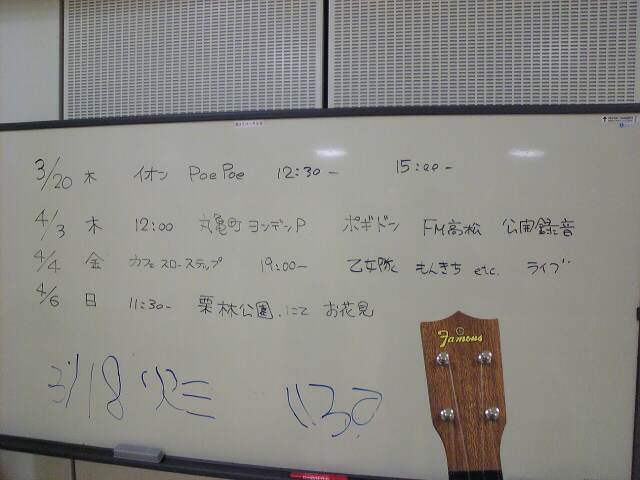 3/20 木 イオン PoePoe 12:30〜 15:00〜
4/3 木 12:00 丸亀町ヨンデンP ポギドン FM高松 公開録音
4/4 金 カフェスローステップ 19:00〜 乙女隊 もんきち etc. ライブ
4/6 日 11:30〜 栗林公園.にて お花見
3/18 火 11:30
Famous